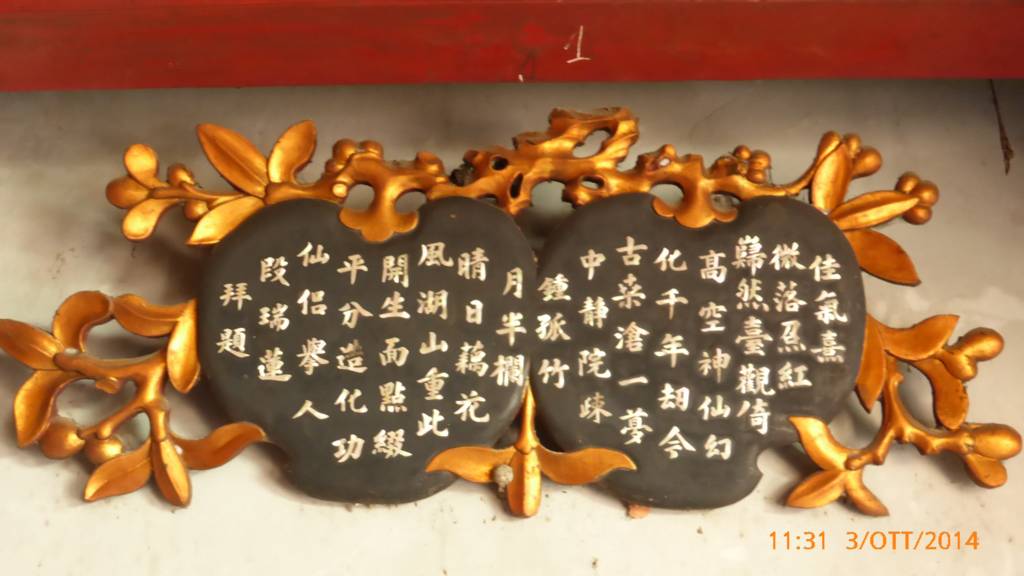 1
佳氣熹
微落紅
巋然臺觀倚
高空神仙幻
化千年劫今
古桒滄一夢
中静院疎
鍾孤竹
月半欄
晴日藕花
風湖山重此
開生面點綴
平分造化功
仙侶擧人
段瑞蓮
拜題
11:31 3/OTT/2014